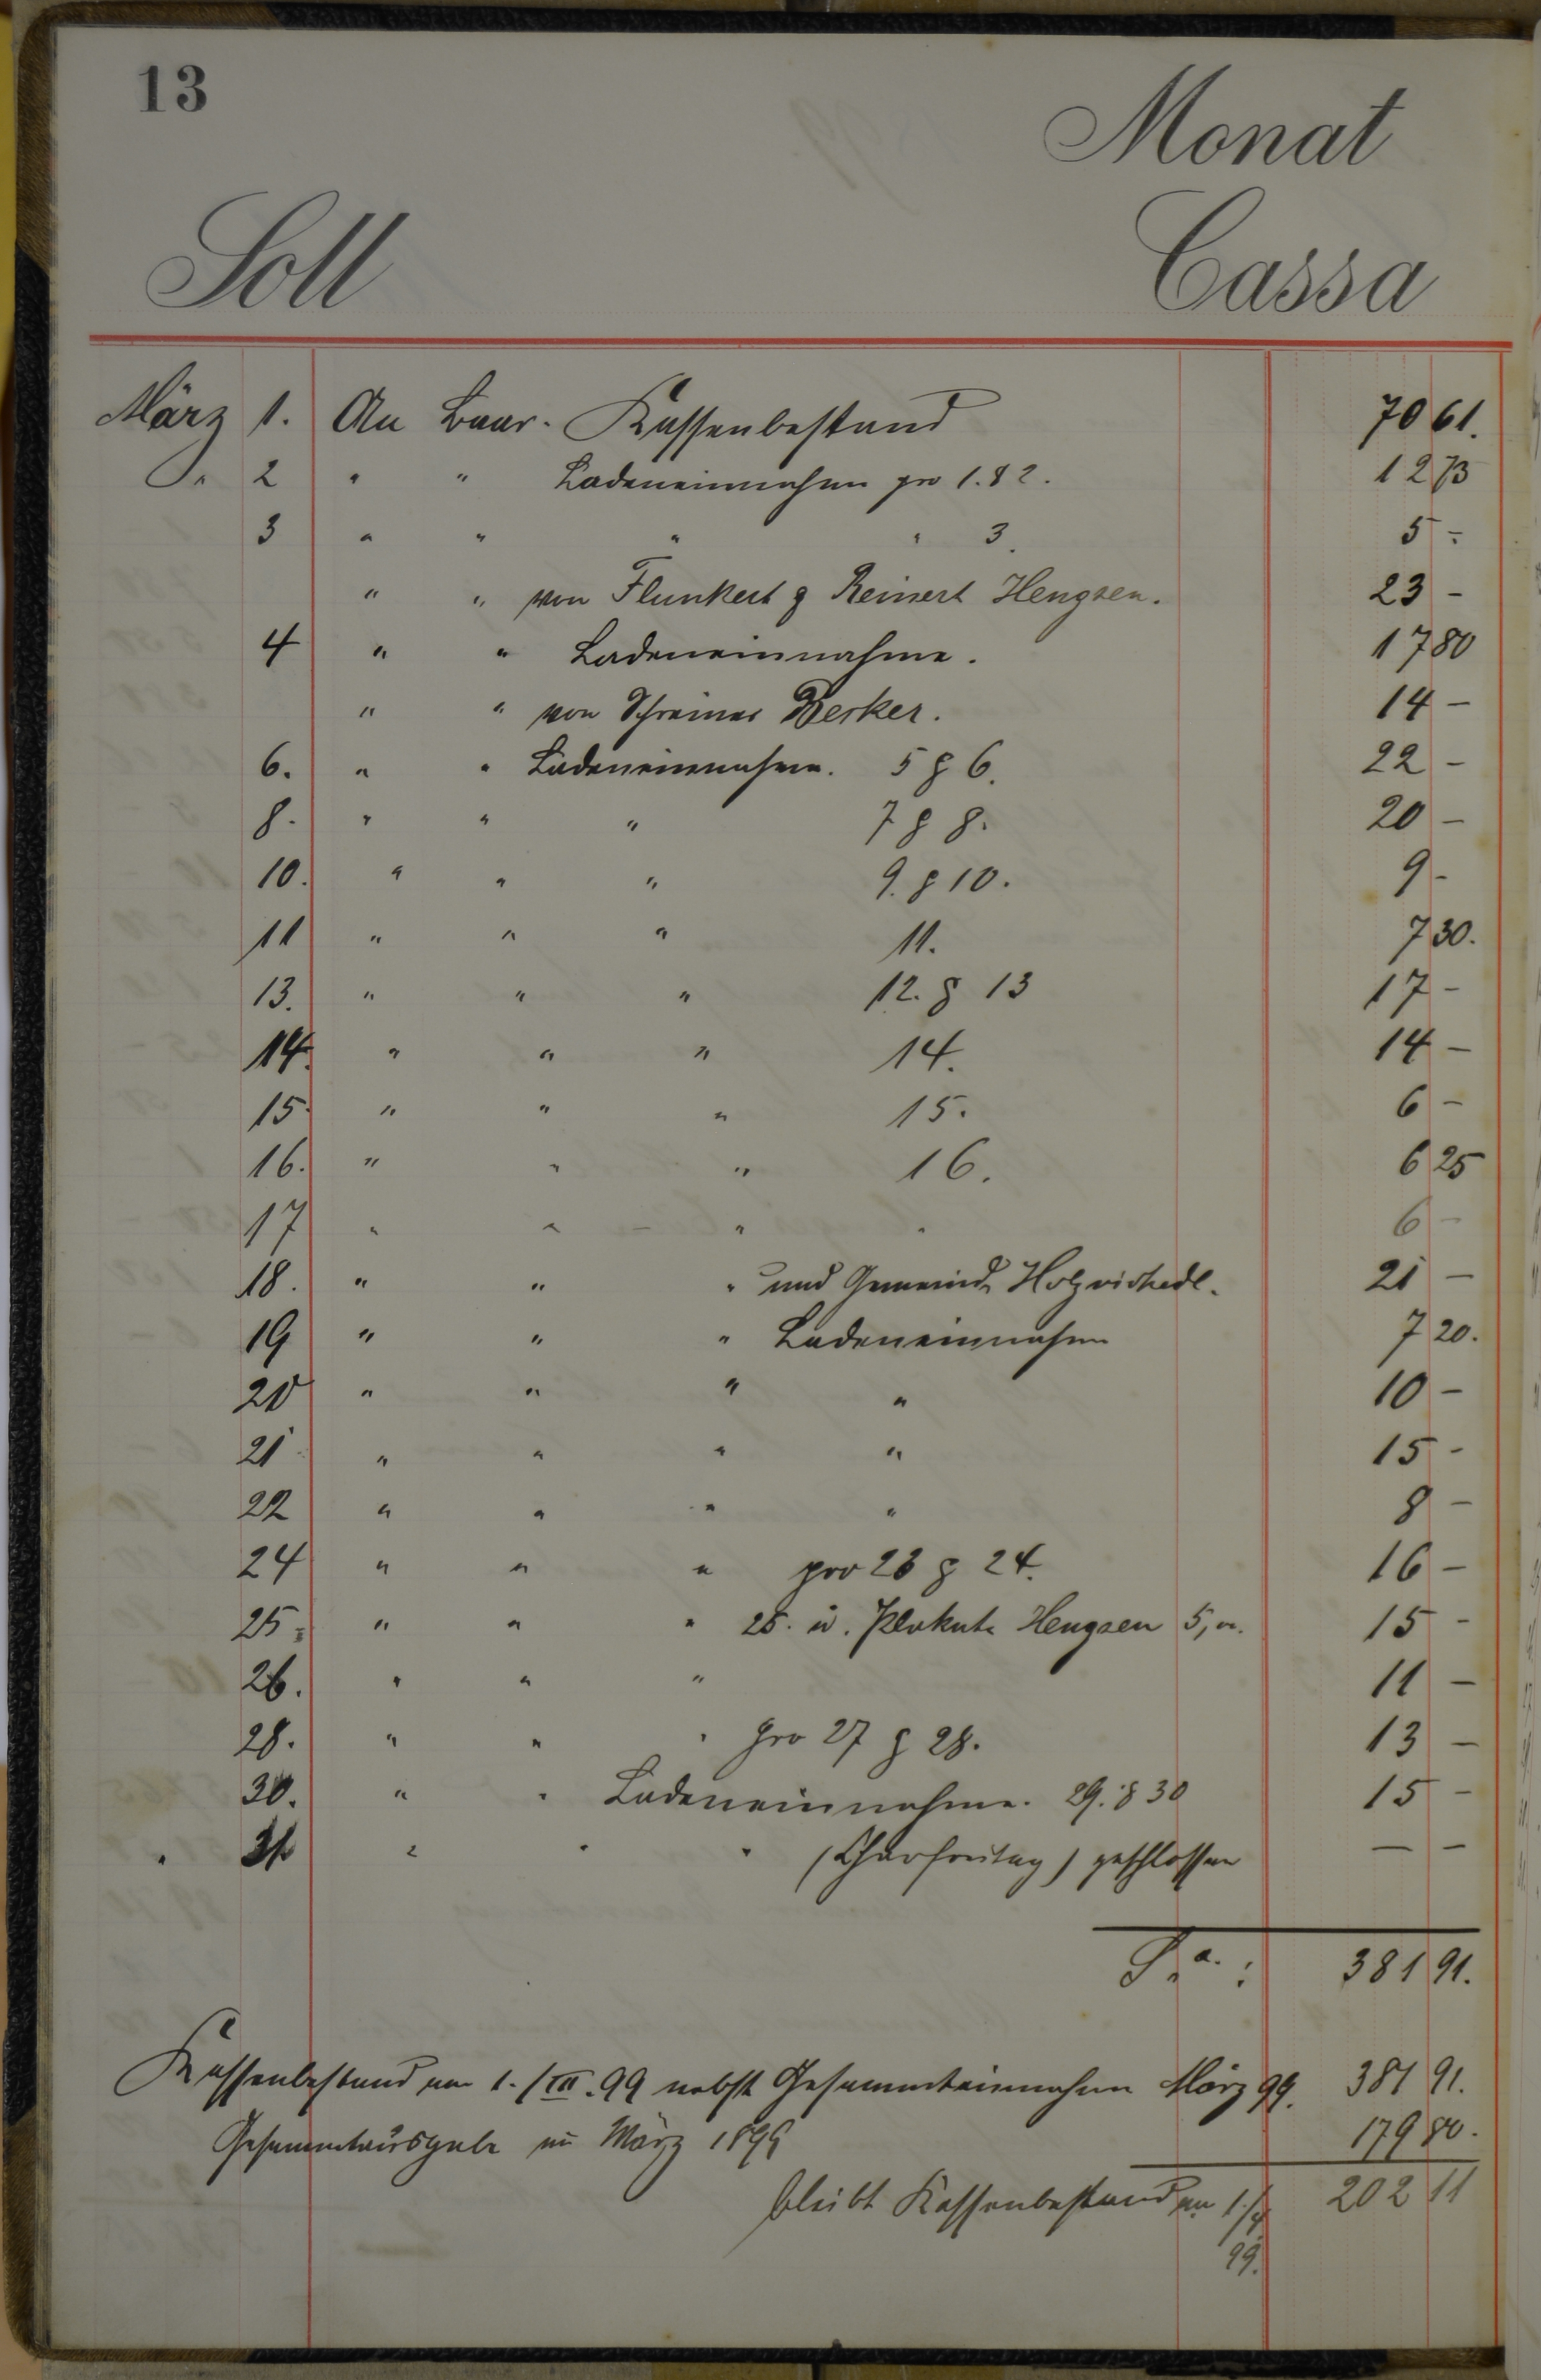 13
Monat
Soll Cassa
März 1. An Baar. Kassenbestand 70 61.
" 2 " " Ladeneinnahme pro 1. & 2. 12 73
3 " " " " 3. 5 -
" " von Flunkert & Reinert Hengsen. 23 -
4 " " Ladeneinnahme. 17 80
" " von Schreiner Becker. 14 -
6. " " Ladeneinnahme. 5 & 6. 22 -
8. " " " 7 & 8. 20 -
10. " " " 9. & 10. 9 -
11 " " " 11. 7 30.
13. " " " 12. & 13 17 -
14. " " " 14. 14 -
15. " " " 15. 6 -
16. " " " 16. 6 25
17 " " " " 6 -
18. " " " und Gemeinde Holzwickede. 21 -
19 " " " Ladeneinnahme 7 20.
20 " " " " 10 -
21 " " " " 15 -
22 " " " " 8 -
24 " " " pro 23 & 24. 16 -
25. " " " 25. u. Hengsen 5, 15 -
26. " " " 11 -
28. " " " pro 27 & 28. 13 -
30. " " Ladeneinnahme. 29. & 30 15 -
" 31 " " " (Charfreitag) geschlossen — —
Sa. : 381 91.
Kassenbestand am 1./III.99 nebst Gesammteinnahme März 99. 381 91.
Gesammtausgabe im März 1899 179 80.
bleibt Kassenbestand am 1./4 202 11
99.